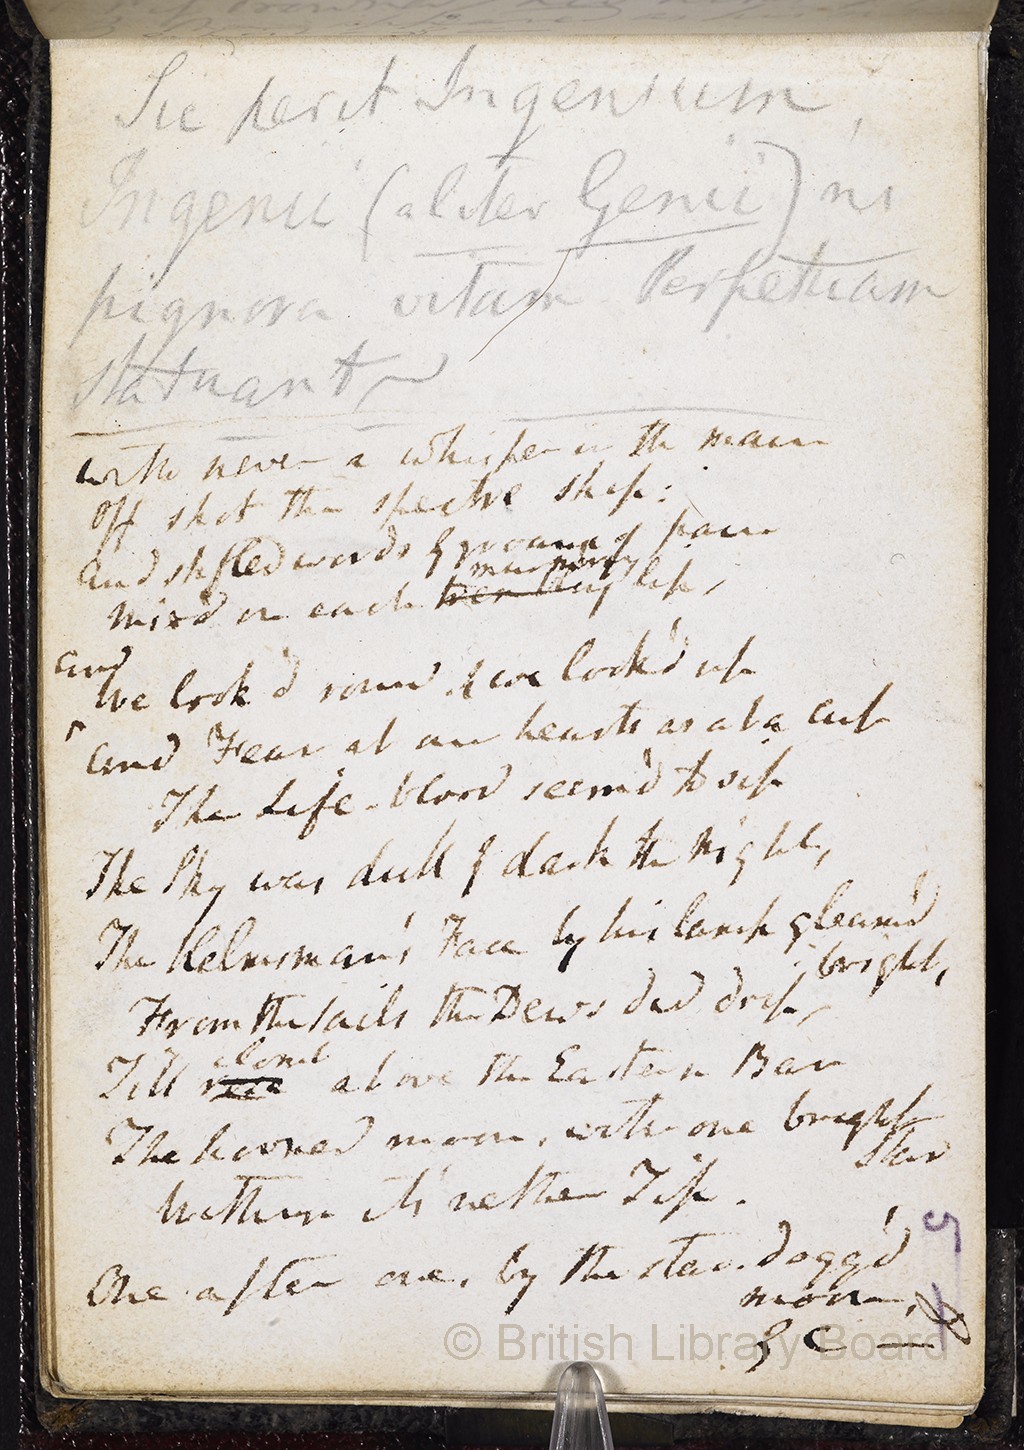 Sic perit Ingenium,
Ingenii (aliter Genii) ni
pignora vitam Perpetuam
statuant
With never a whisper in the main
Off shot the spectre ship:
And stifled words & groans of pain
murmuring
Mix'd on each trembling lip,
And
We look'd round & we look'd up
And Fear at our hearts as at a cup
The Life-blood seem'd to sip
The Sky was dull & dark the Night,
The Helmsman's Face by his lamp gleam'd
bright,
From the sails the Dews did drip,
clomb
Till rose above the Eastern Bar
The horned moon, with one bright
Star
Within its nether Tip.
One after one, by the star-dogg'd
moon,
&c —
5
© British Library Board